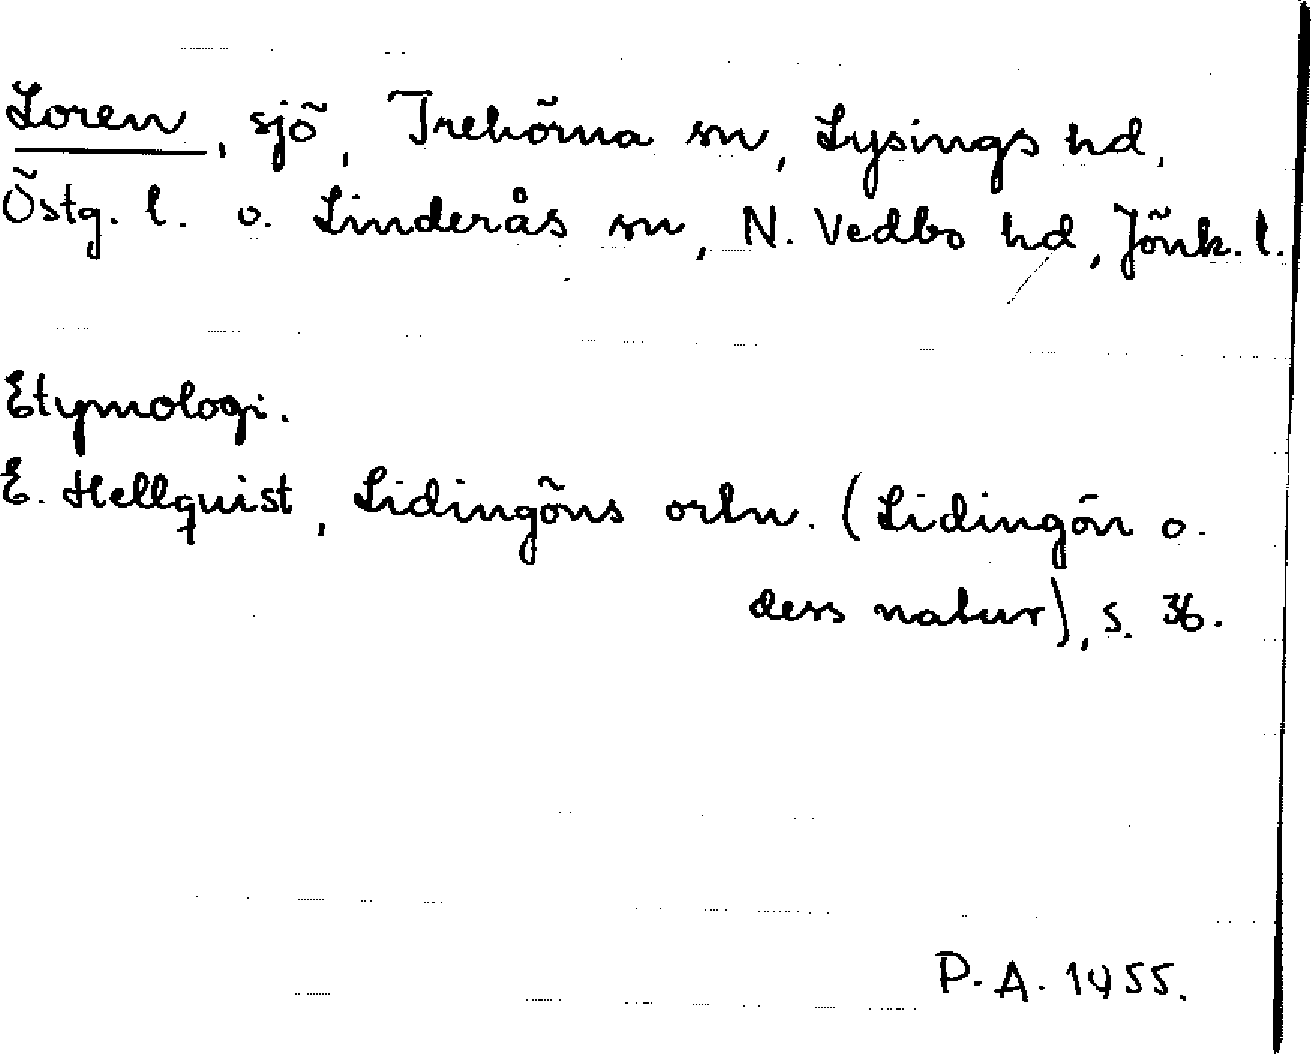 Loren, sjö, Trehörna sn, Lysings hd,
Östg. l. o. Linderås sn, N. Vedbo hd, Jönk. l.
Etymologi.
E. Hellquist, Lidingöns ortn. (Lidingön o.
dess natur), s. 36.
P. A. 1955.